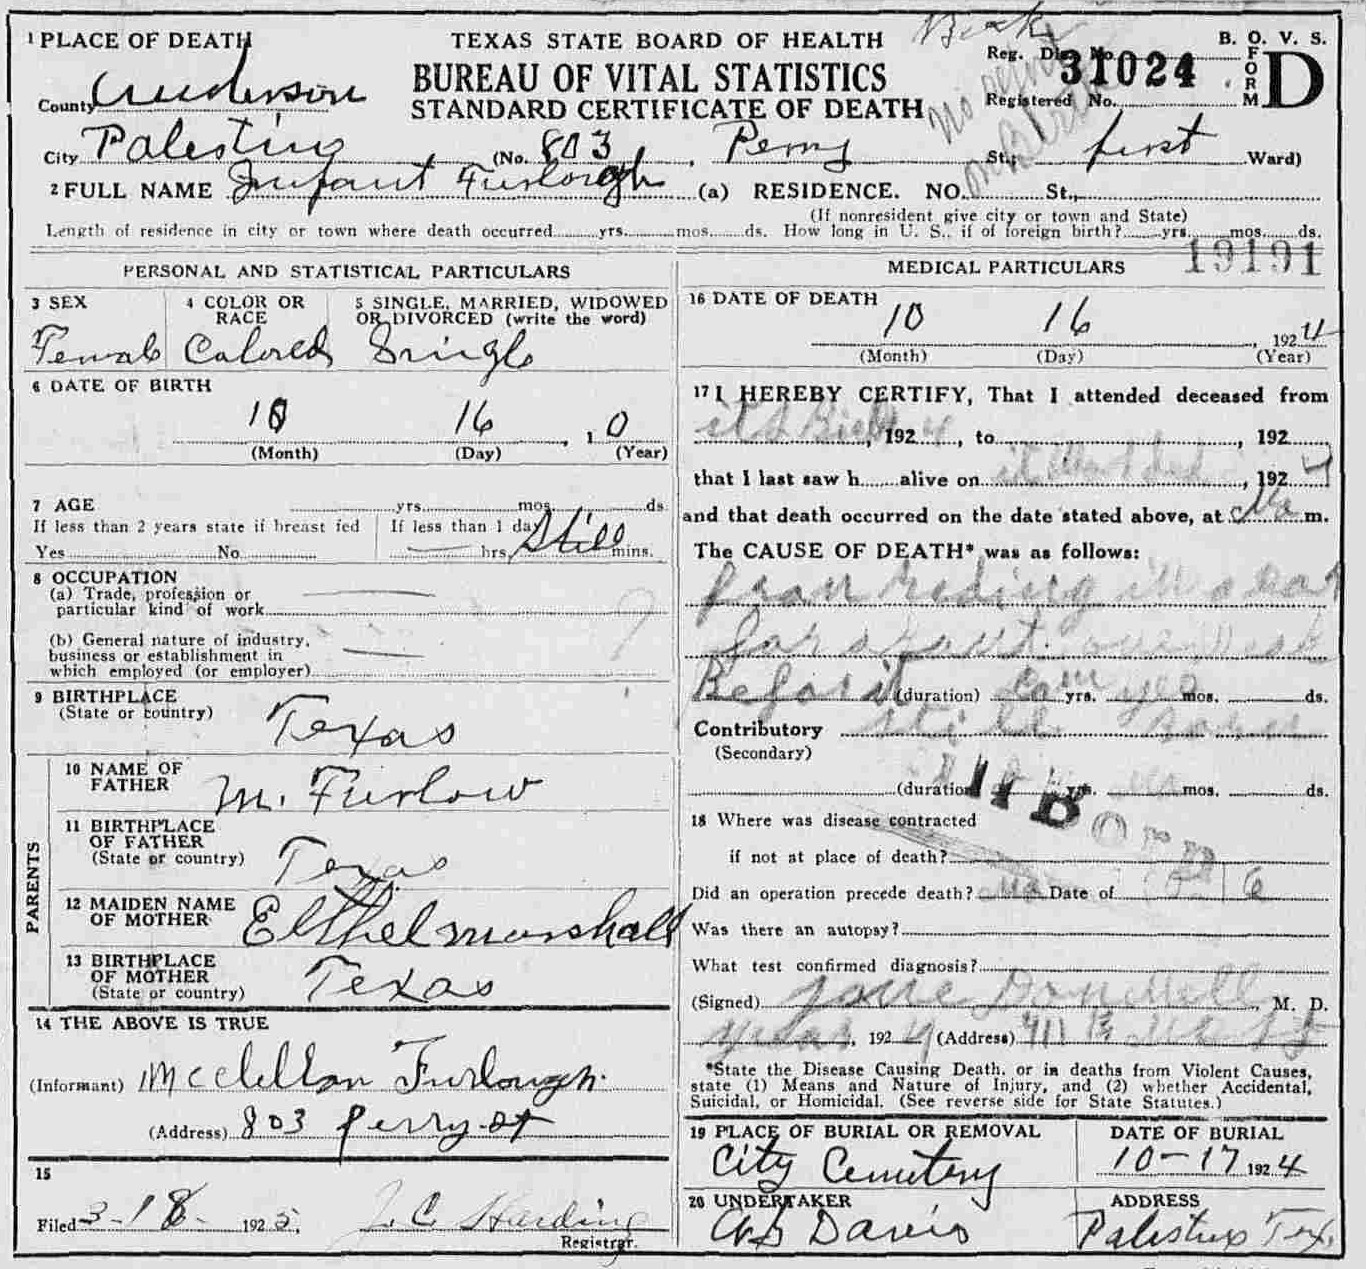 1 PLACE OF DEATH
TEXAS STATE BOARD OF HEALTH
BUREAU OF VITAL STATISTICS
STANDARD CERTIFICATE OF DEATH
B. O. V. S.
FORM D
Reg. Dis. No. 31024
Registered No.
County Anderson
City Palestine (No. 803, Perry St.; first Ward)
2 FULL NAME Infant Furlough (a) RESIDENCE. NO. St.,
(If nonresident give city or town and State)
Length of residence in city or town where death occurred yrs. mos. ds. How long in U. S., if of foreign birth? yrs. mos. ds.
19191
PERSONAL AND STATISTICAL PARTICULARS
3 SEX 4 COLOR OR RACE 5 SINGLE, MARRIED, WIDOWED OR DIVORCED (write the word)
Female Colored Single
6 DATE OF BIRTH
10 16, 1 0
(Month) (Day) (Year)
7 AGE yrs. mos. ds.
If less than 2 years state if breast fed If less than 1 day
Yes No hrs. Still mins.
8 OCCUPATION
(a) Trade, profession or
particular kind of work
(b) General nature of industry,
business or establishment in
which employed (or employer)
9 BIRTHPLACE
(State or country) Texas
PARENTS
10 NAME OF
FATHER M. Furlow
11 BIRTHPLACE
OF FATHER
(State or country) Texas
12 MAIDEN NAME
OF MOTHER Elthel marshall
13 BIRTHPLACE
OF MOTHER
(State or country) Texas
14 THE ABOVE IS TRUE
(Informant) McClellan Furlough
(Address) 803 perry st
15
Filed 3-18- 1925, J C Harding
Registrar.
MEDICAL PARTICULARS
16 DATE OF DEATH
10 16, 1924
(Month) (Day) (Year)
17 I HEREBY CERTIFY, That I attended deceased from
its Birth, 1924, to, 192
that I last saw h alive on, 1924
and that death occurred on the date stated above, at m.
The CAUSE OF DEATH* was as follows:
from riding in a car
for about one week
Before it (duration) yrs. mos. ds.
Contributory still born
(Secondary)
(duration yrs. mos. ds.
18 Where was disease contracted
if not at place of death?
Did an operation precede death? No Date of
Was there an autopsy?
What test confirmed diagnosis?
(Signed), M. D.
, 1924 (Address) 911
*State the Disease Causing Death, or in deaths from Violent Causes,
state (1) Means and Nature of Injury, and (2) whether Accidental,
Suicidal, or Homicidal. (See reverse side for State Statutes.)
19 PLACE OF BURIAL OR REMOVAL DATE OF BURIAL
City Cemetery 10-17 1924
20 UNDERTAKER ADDRESS
Davis Palestine Tex.